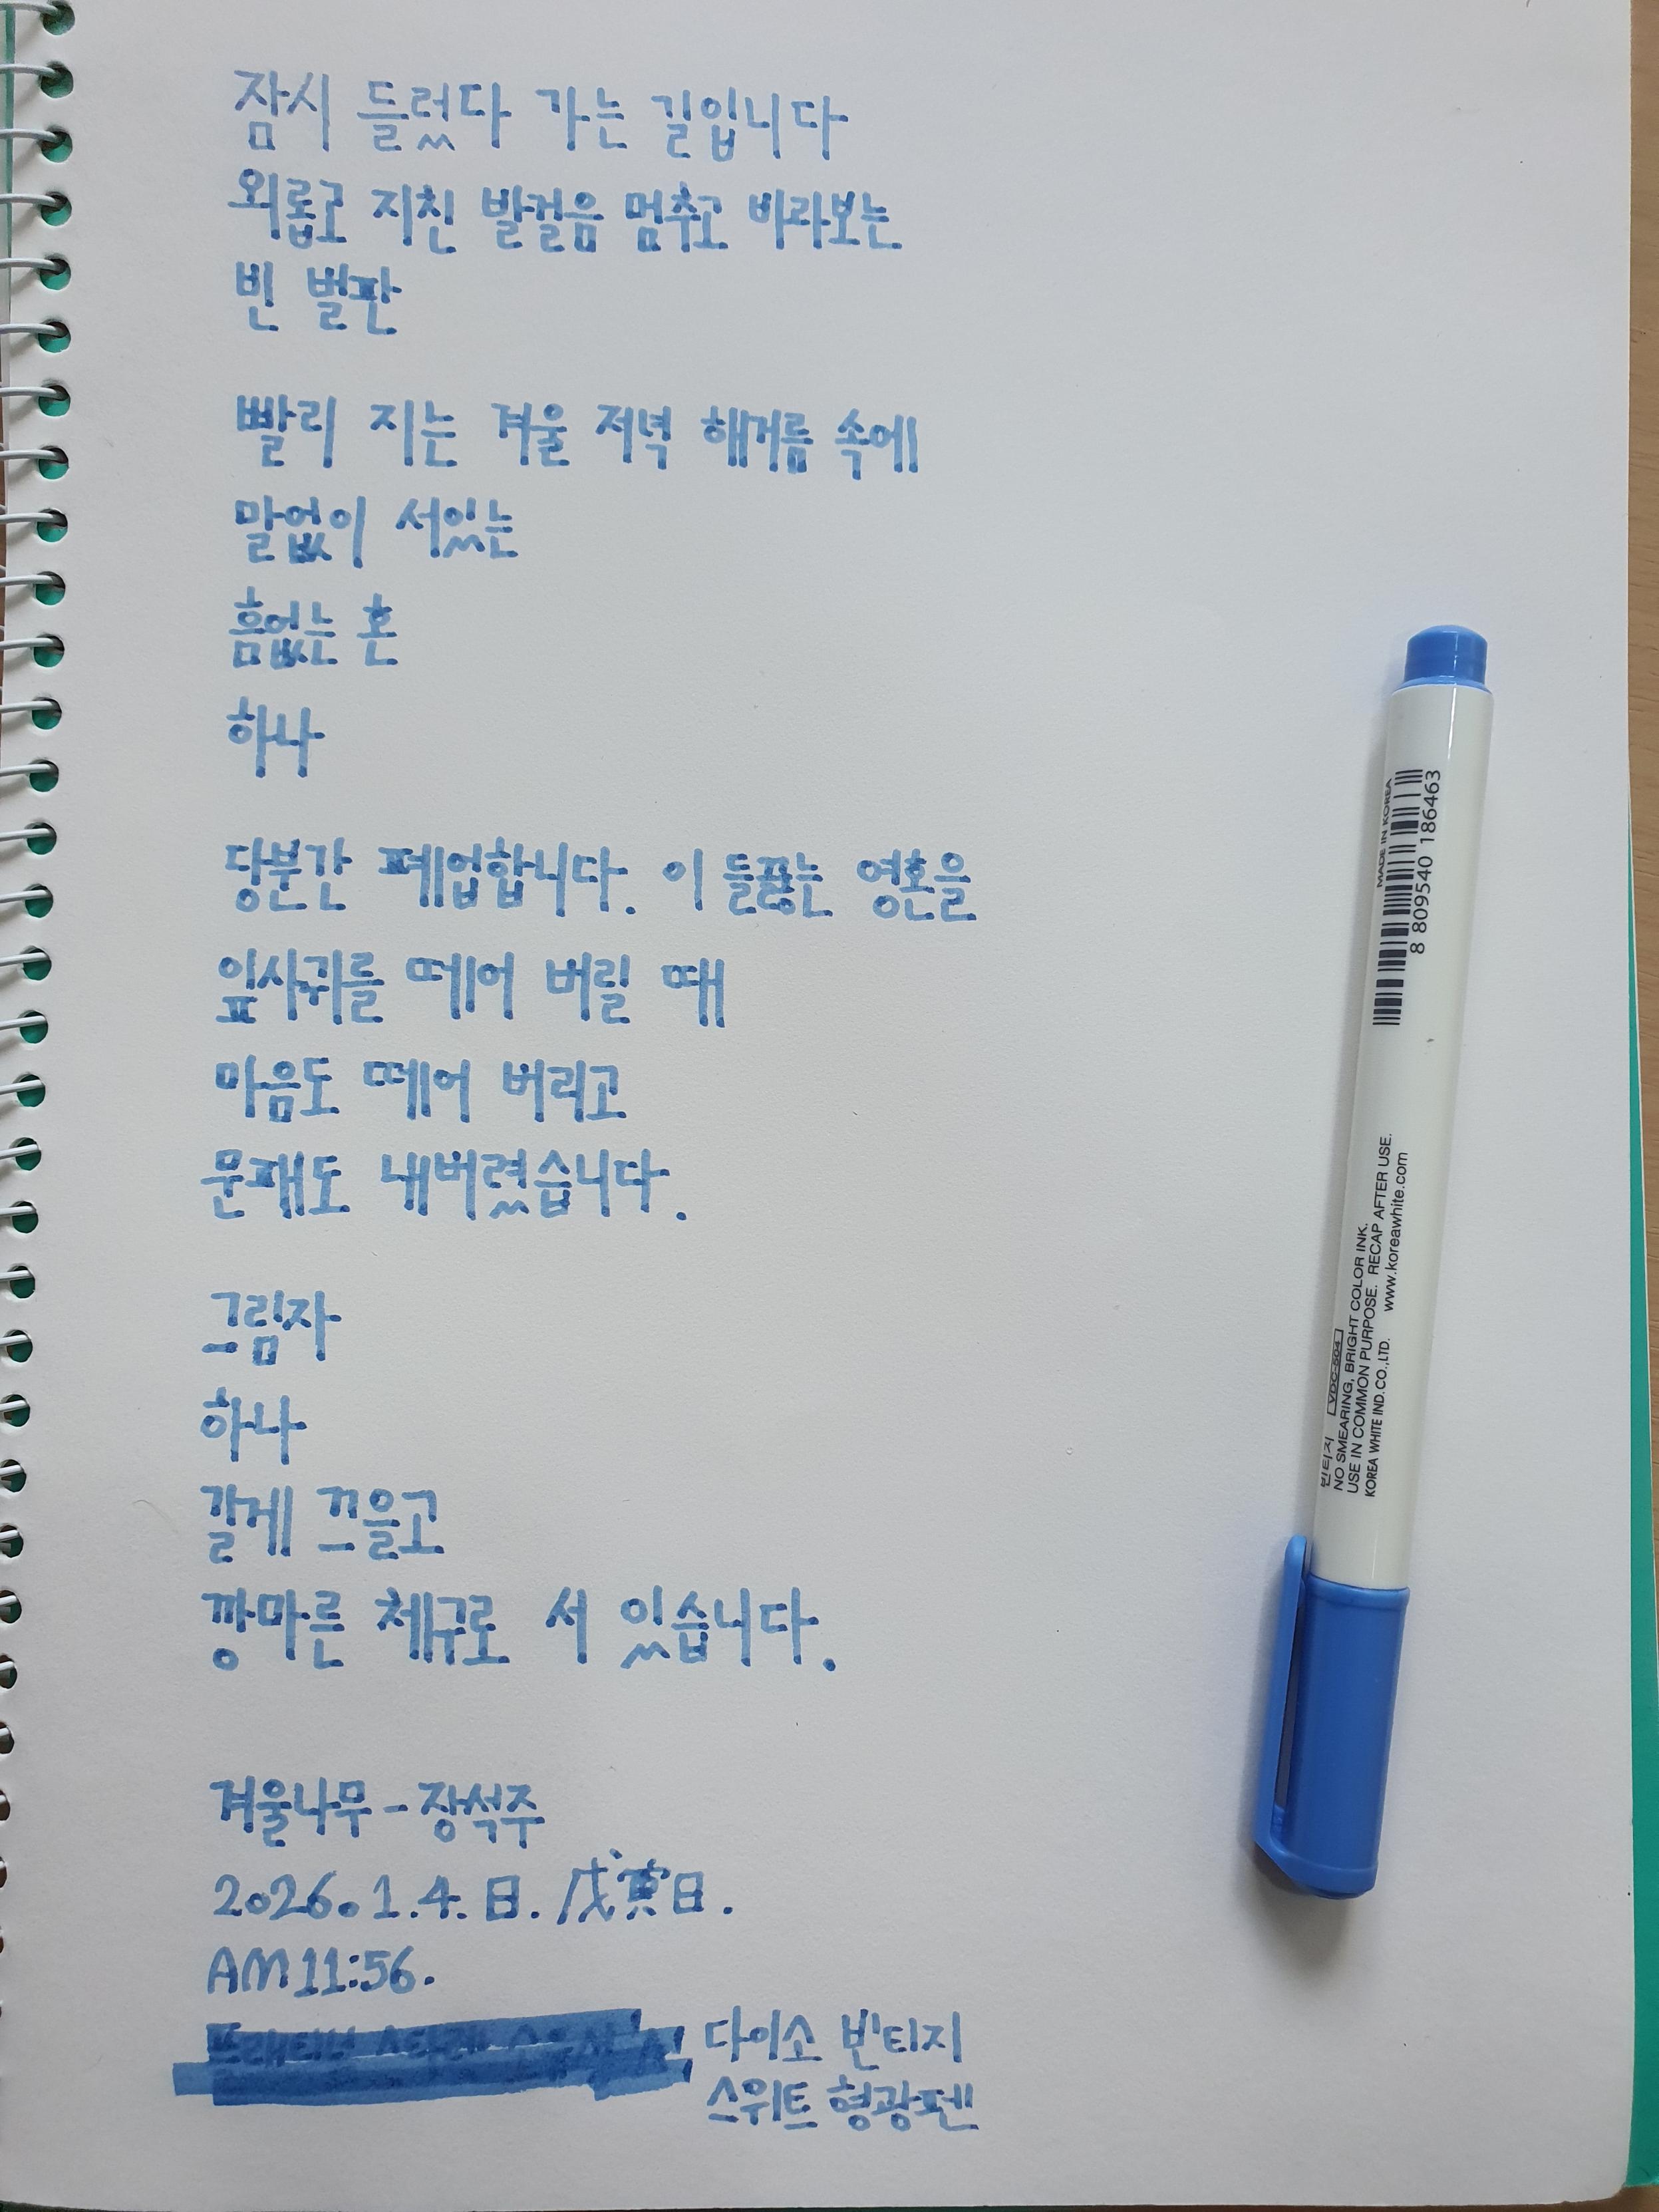 잠시 들렀다 가는 길입니다
외롭고 지친 발걸음 멈추고 바라보는
빈 벌판
빨리 지는 겨울 저녁 해거름 속에
말없이 서있는
흠없는 혼
하나
당분간 폐업합니다. 이 들끓는 영혼을
잎사귀를 떼어 버릴 때
마음도 떼어 버리고
문패도 내버렸습니다.
그림자
하나
길게 끄을고
깡마른 체구로 서 있습니다.
겨울나무-장석주
2026.1.4.日.戊寅日.
AM11:56.
다이소 빈티지
스위트 형광펜
MADE IN KOREA
8 809540 186463
빈티지 VDC-504
NO SMEARING, BRIGHT COLOR INK.
USE IN COMMON PURPOSE. RECAP AFTER USE.
KOREA WHITE IND.CO.,LTD. www.koreawhite.com